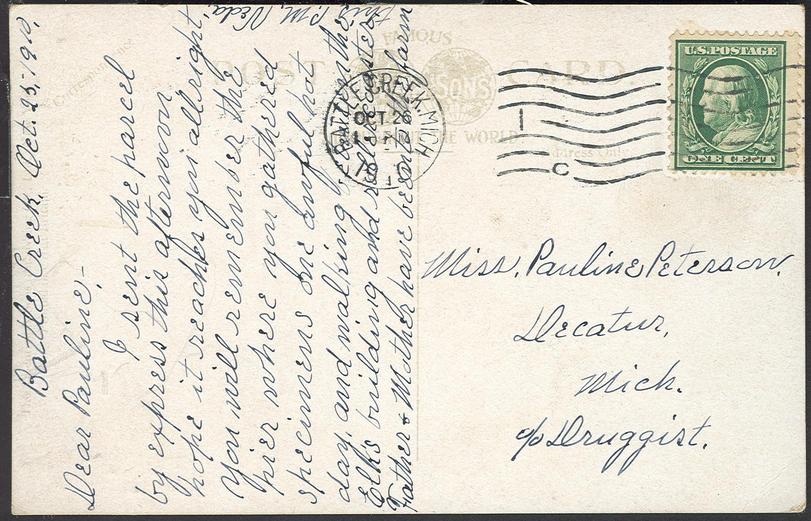 Battle Creek, Oct. 25, 1910
Dear Pauline:-
I sent the parcel
by express this afternoon
hope it reaches you allright
You will remember the
pier where you gathered
specimens one awful hot
day, and walking
Elks building and
Father & Mother have been
farm
this P.M.
FAMOUS
POST CARD
SONS
THE WORLD
BATTLE CREEK, MICH.
OCT 26
1910
U.S. POSTAGE
ONE CENT
1
C
Miss. Pauline Peterson.
Decatur,
Mich.
c/o Druggist.